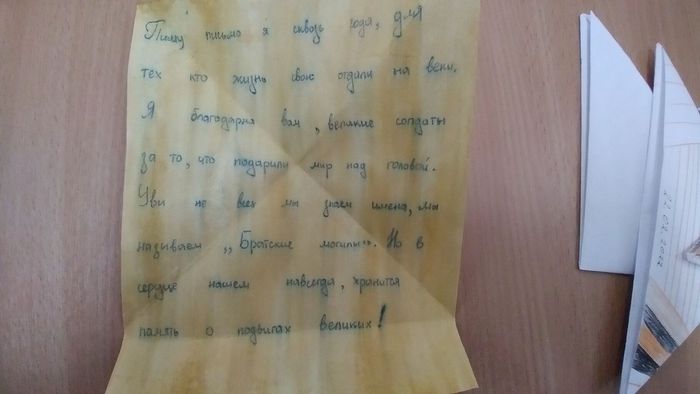 Пишу письмо я сквозь года, для
тех кто жизнь свою отдали на веки.
Я благодарна вам, великие солдаты
за то, что подарили мир над головой.
Уви не всех мы знаем имена, мы
називаем „Братские могилы". Но в
сердце нашем навсегда, хранится
память о подвигах великих!